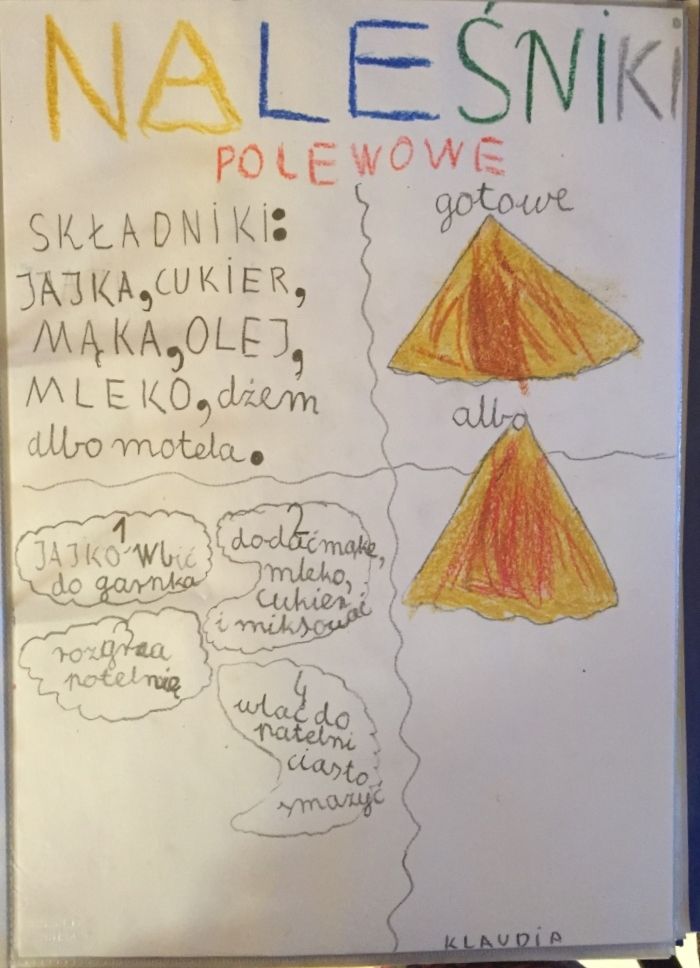 NALEŚNIKI
POLEWOWE
SKŁADNIKI:
JAJKA, CUKIER,
MĄKA, OLEJ,
MLEKO, dżem
albo motela.
gotowe
albo
1
JAJKO wbić
do garnka
2
dodać mąkę,
mleko,
cukier
i miksować
3
rozgrza
patelnię
4
wlać do
patelni
ciasto
smażyć
KLAUDIA